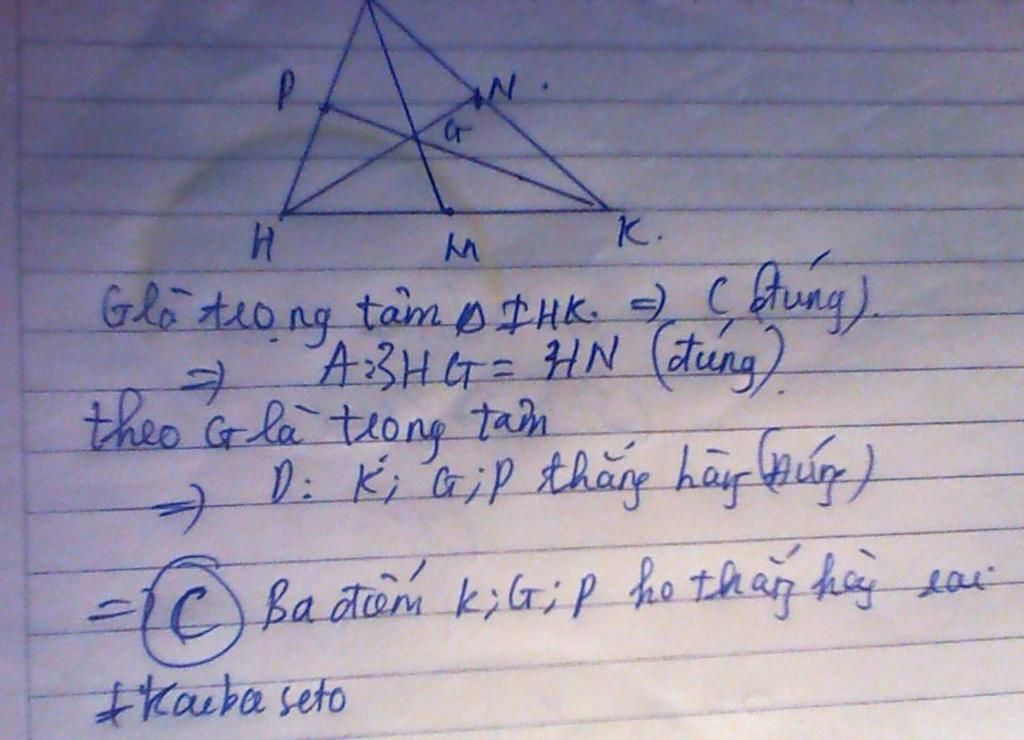 P
N.
G
H
M
K.
G là trọng tâm Δ IHK. => C (đúng).
=> A: 3HG = HN (đúng).
theo G là trong tâm
=> D: K; G; P thẳng hàng (Đúng)
= (C) Ba điểm K; G; P ko thẳng hàg sai.
Kaiba seto